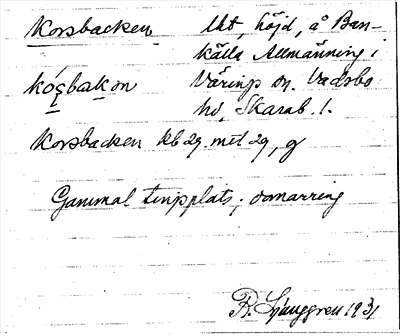 Korsbacken lht, höjd, å Ban-
källa Allmänning i
Väring sn. Vadsbo
hd, Skarab. l.
Korsbacken kb 29. mtl 29, g
Gammal tingplats; domarring
R. Ljunggren 1931